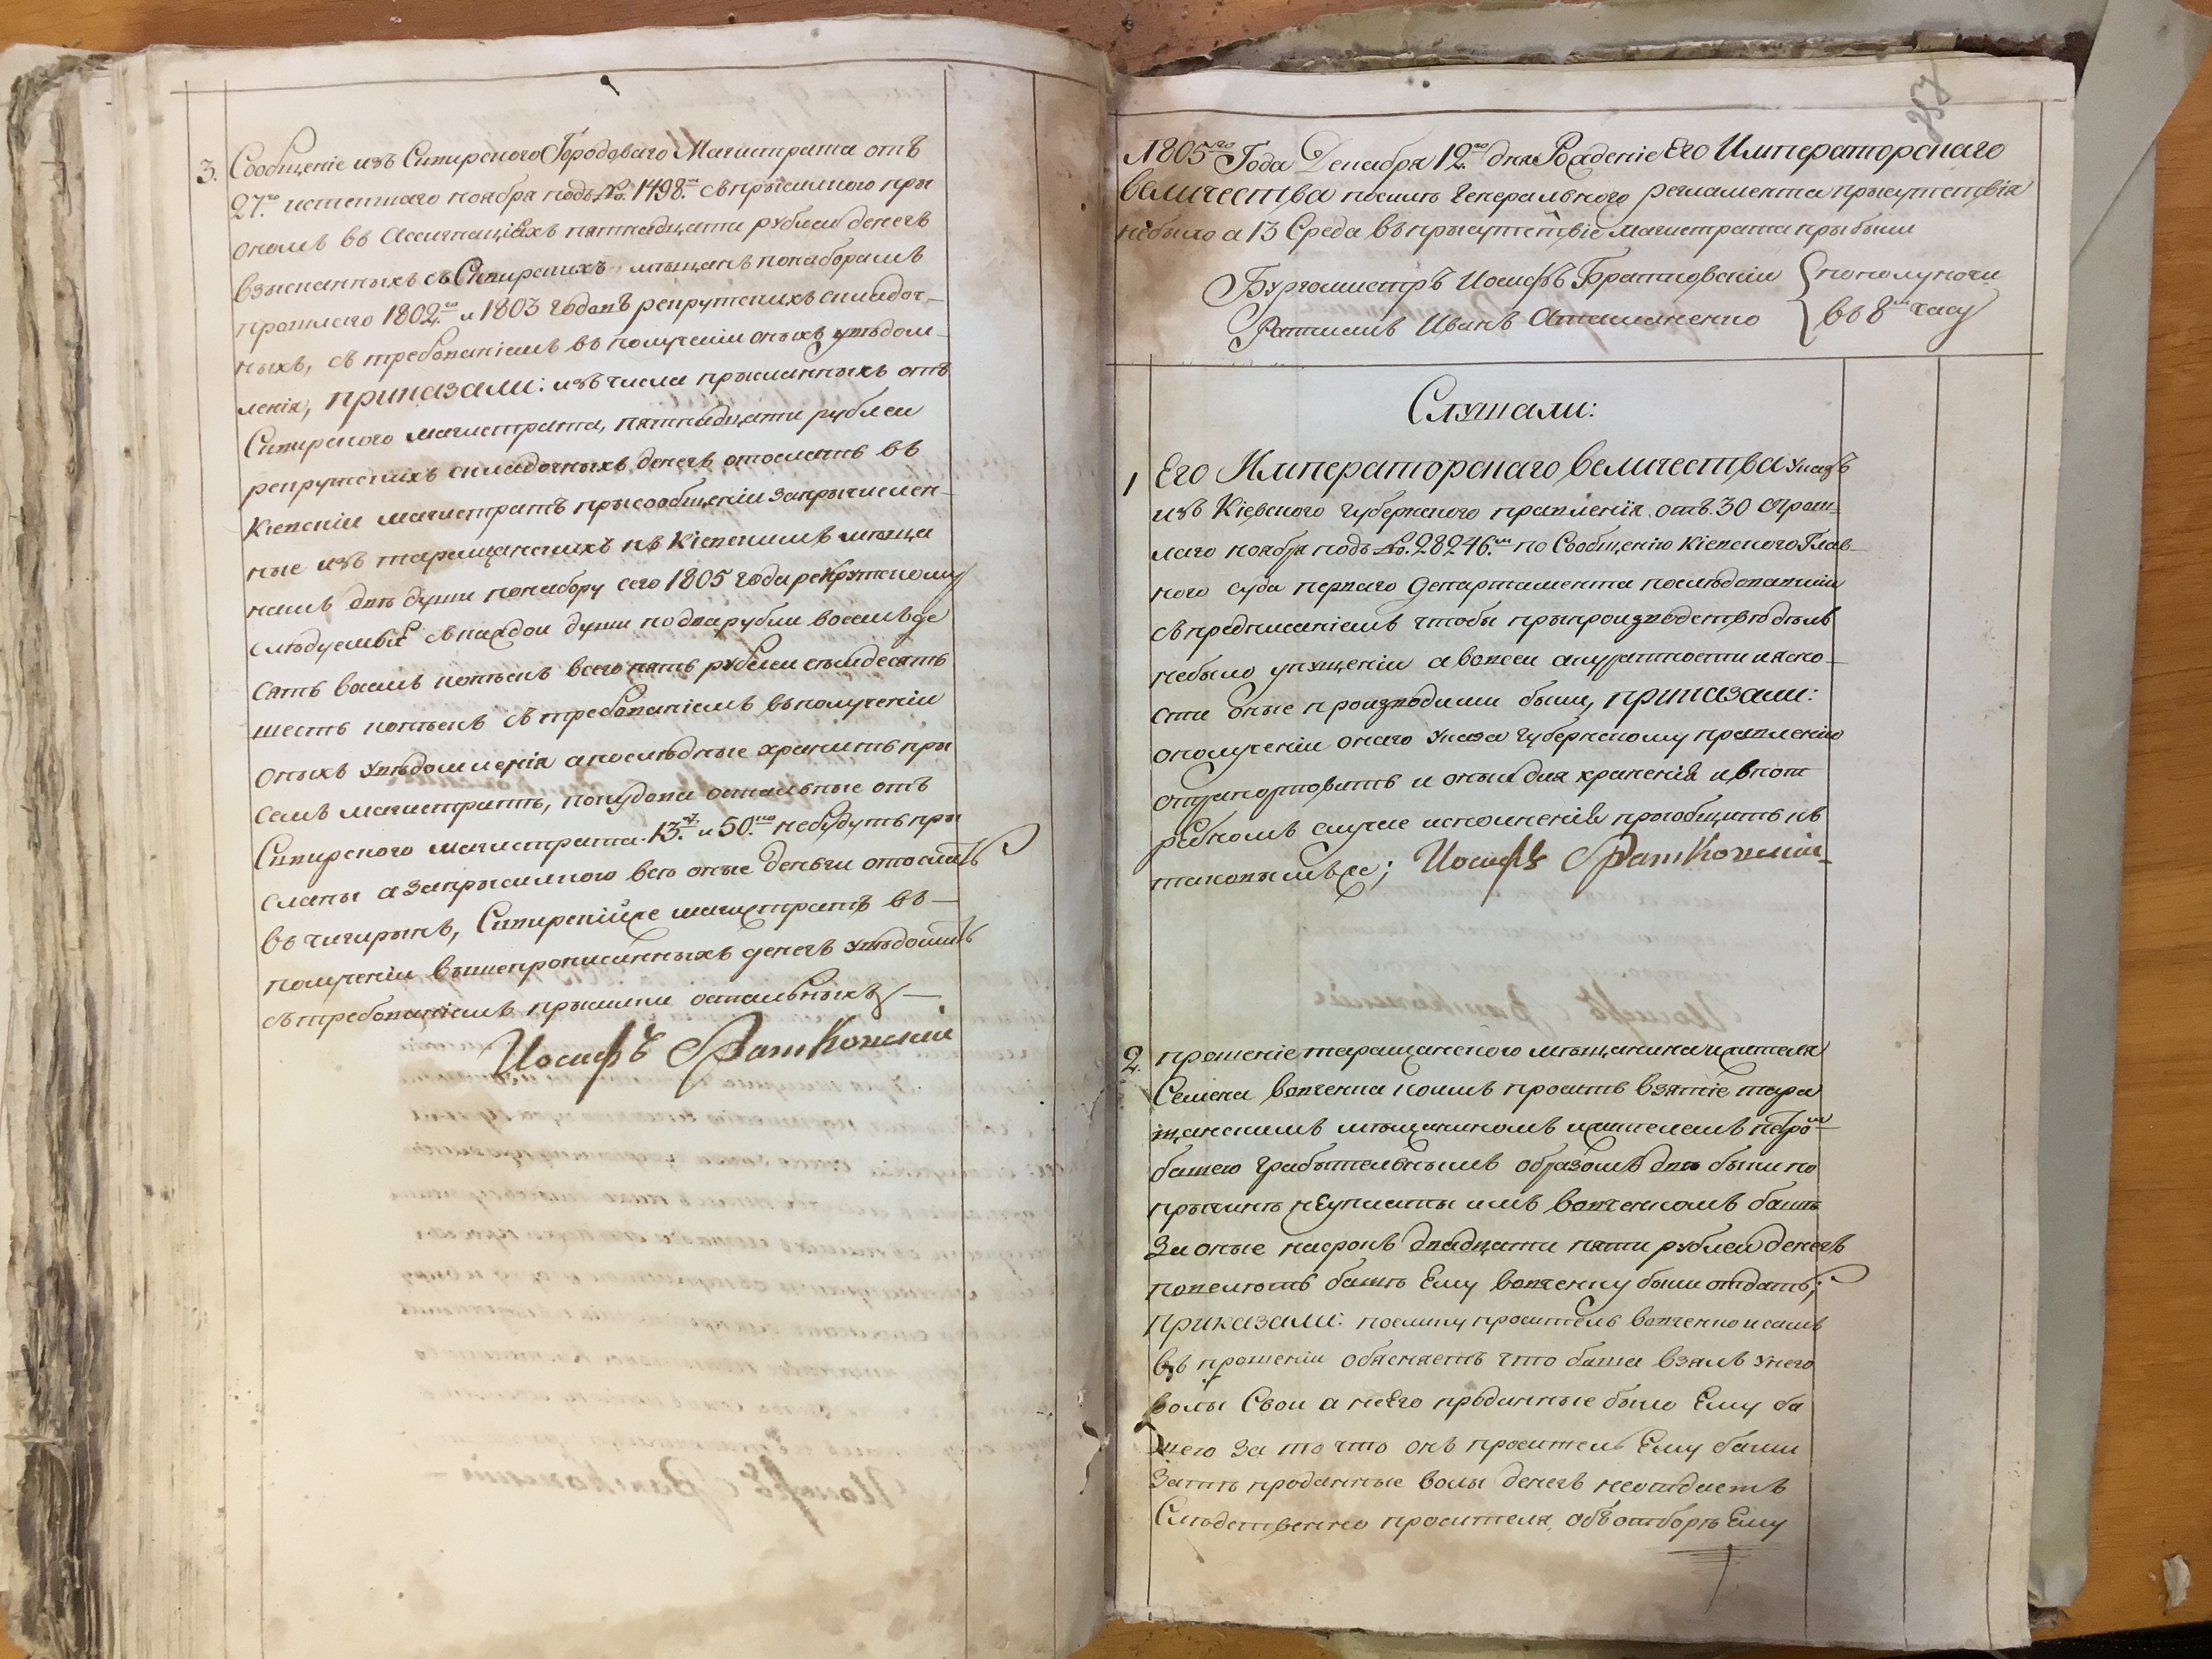 3. Сообщеніе изъ Сквирского Городоваго Магистрата отъ
27.го истекшаго ноября подъ №. 1498.м съ присилкою при
ономъ въ Ассигнаціяхъ пятнадцати рублей денегъ
взысканныхъ съ Сквирскихъ мѣщанъ понаборамъ
прошлаго 1802.го и 1803 годовъ рекрутскихъ складоч-
ныхъ, съ требованіемъ въ полученіи оныхъ увѣдом-
ленія, приказали: изъ числа присланныхъ отъ
Сквирского магистрата, пятнадцати рублей
рекрутскихъ складочныхъ денегъ отослать въ
Кіевскій магистратъ присообщеніи запричислен-
ные изъ таращанскихъ къ Кіевскимъ мѣща
намъ двѣ души понабору сего 1805 года рекрутскому
слѣдуемые съ каждой души по два рубли восемъде
сятъ восемъ копѣекъ всего пять рублей семдесятъ
шесть копѣекъ съ требованіемъ въ полученіи
оныхъ увѣдомленія а послѣдные хранить при
семъ магистратѣ, покудова остальные отъ
Сквирского магистрата 13. и 50.ко небудутъ при
сланы а заприсилкою всѣ оные деньги отослать
въ чигиринъ, Сквирскійже магистратъ въ
полученіи вышепрописанныхъ денегъ увѣдомить
съ требованіемъ присилки остальныхъ
Иосифъ Братковскій
1805го Года Декабря 12.го дня Рожденіе Его Императорскаго
величества посилѣ генерального регламента присутствія
небыло а 13 Среда въ присутствіе магистрата прибыли
Бургомистръ Иосифъ Братковскій пополуночи
Ратманъ Иванъ Атаманенко въ 8м часу
Слушали:
1 Его Императорскаго величества указъ
изъ Кіевского губернского правленія отъ 30 прош-
лаго ноября подъ №. 28246.м по Сообщенію Кіевского Глав-
ного суда перваго департамента последовавшій
съ предписаніемъ чтобы при производствѣ дѣлъ
небыло упущеніи а вовсей акуратности и ясно-
сти оные производими были, приказали:
ополученіи онаго указа губернскому правленію
отрапортовать и оный для храненія и впот
ребномъ случае исполненія приобщить къ
таковымъже; Иосифъ Братковскій
2. прошеніе таращанского мѣщанина и жителя
Семена коимъ проситъ взятіе тара
щанскимъ мѣщаниномъ и жителемъ
башею грабительнымъ образомъ двѣ быки по
причинѣ неуплаты имъ башѣ
за оные насрокъ двадцати пяти рублей денегъ
повелѣть башѣ Ему быки отдать;
приказали: поелику проситель и самъ
въ прошеніи обясняетъ что баша взялъ унего
волы Свои а неЕго проданные было Ему ба
шею за то что онъ проситель Ему баши
затѣ проданные волы денегъ неотдаетъ
Слѣдственно просителя, объ отборѣ Ему